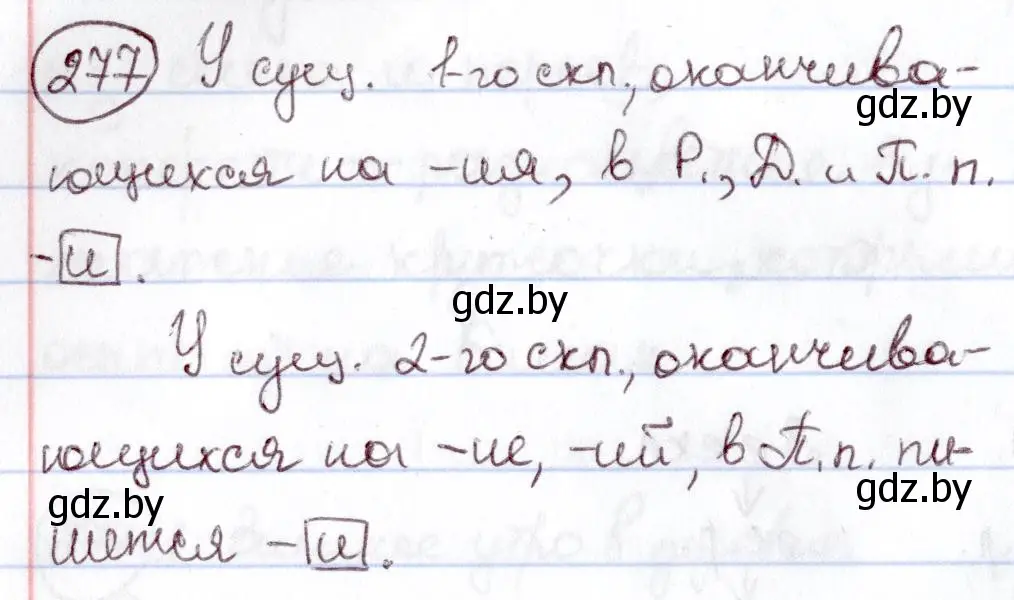 277 У сущ. 1-го скл., оканчива-
gdz.by
ющихся на -ия, в Р., Д. и П. п.
-и.
gdz.by
У сущ. 2-го скл., оканчива-
ющихся на -ие, -ий, в П. п. пи-
gdz.by gdz.by
шется -и.